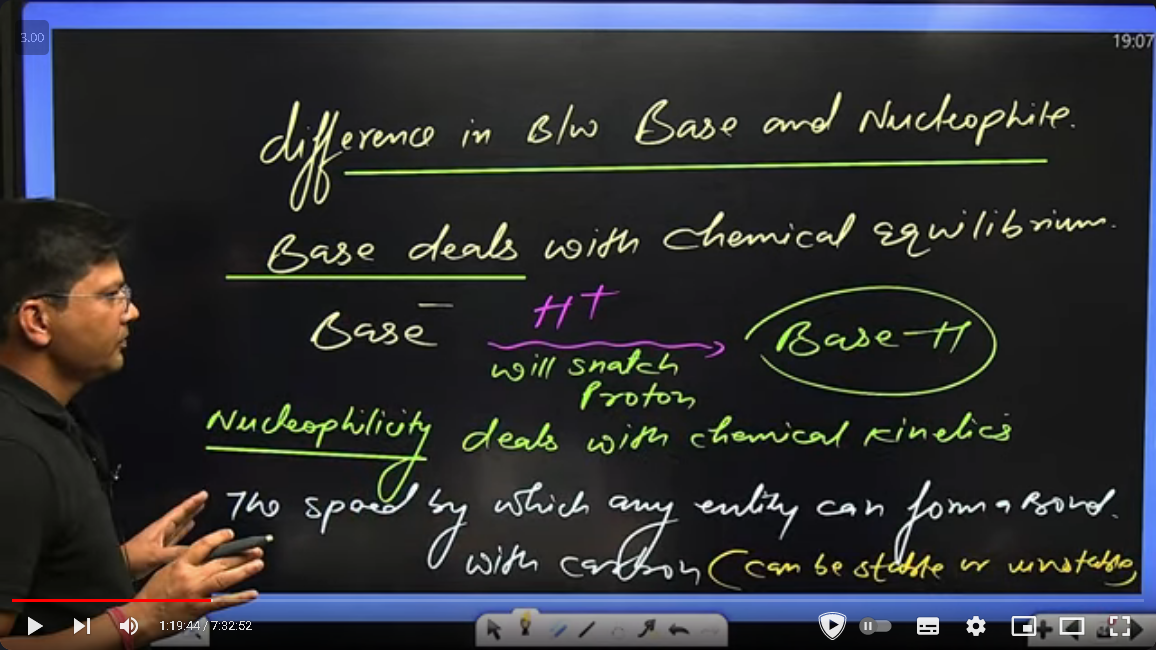 3.00
19:07
difference in B/w Base and Nucleophile.
Base deals with chemical equilibrium.
Base⁻ H+ Base-H
will snatch
Proton
Nucleophilicity deals with chemical kinetics
The speed by which any entity can form a Bond.
with carbon (can be stable or unstable)
1:19:44 / 7:32:52